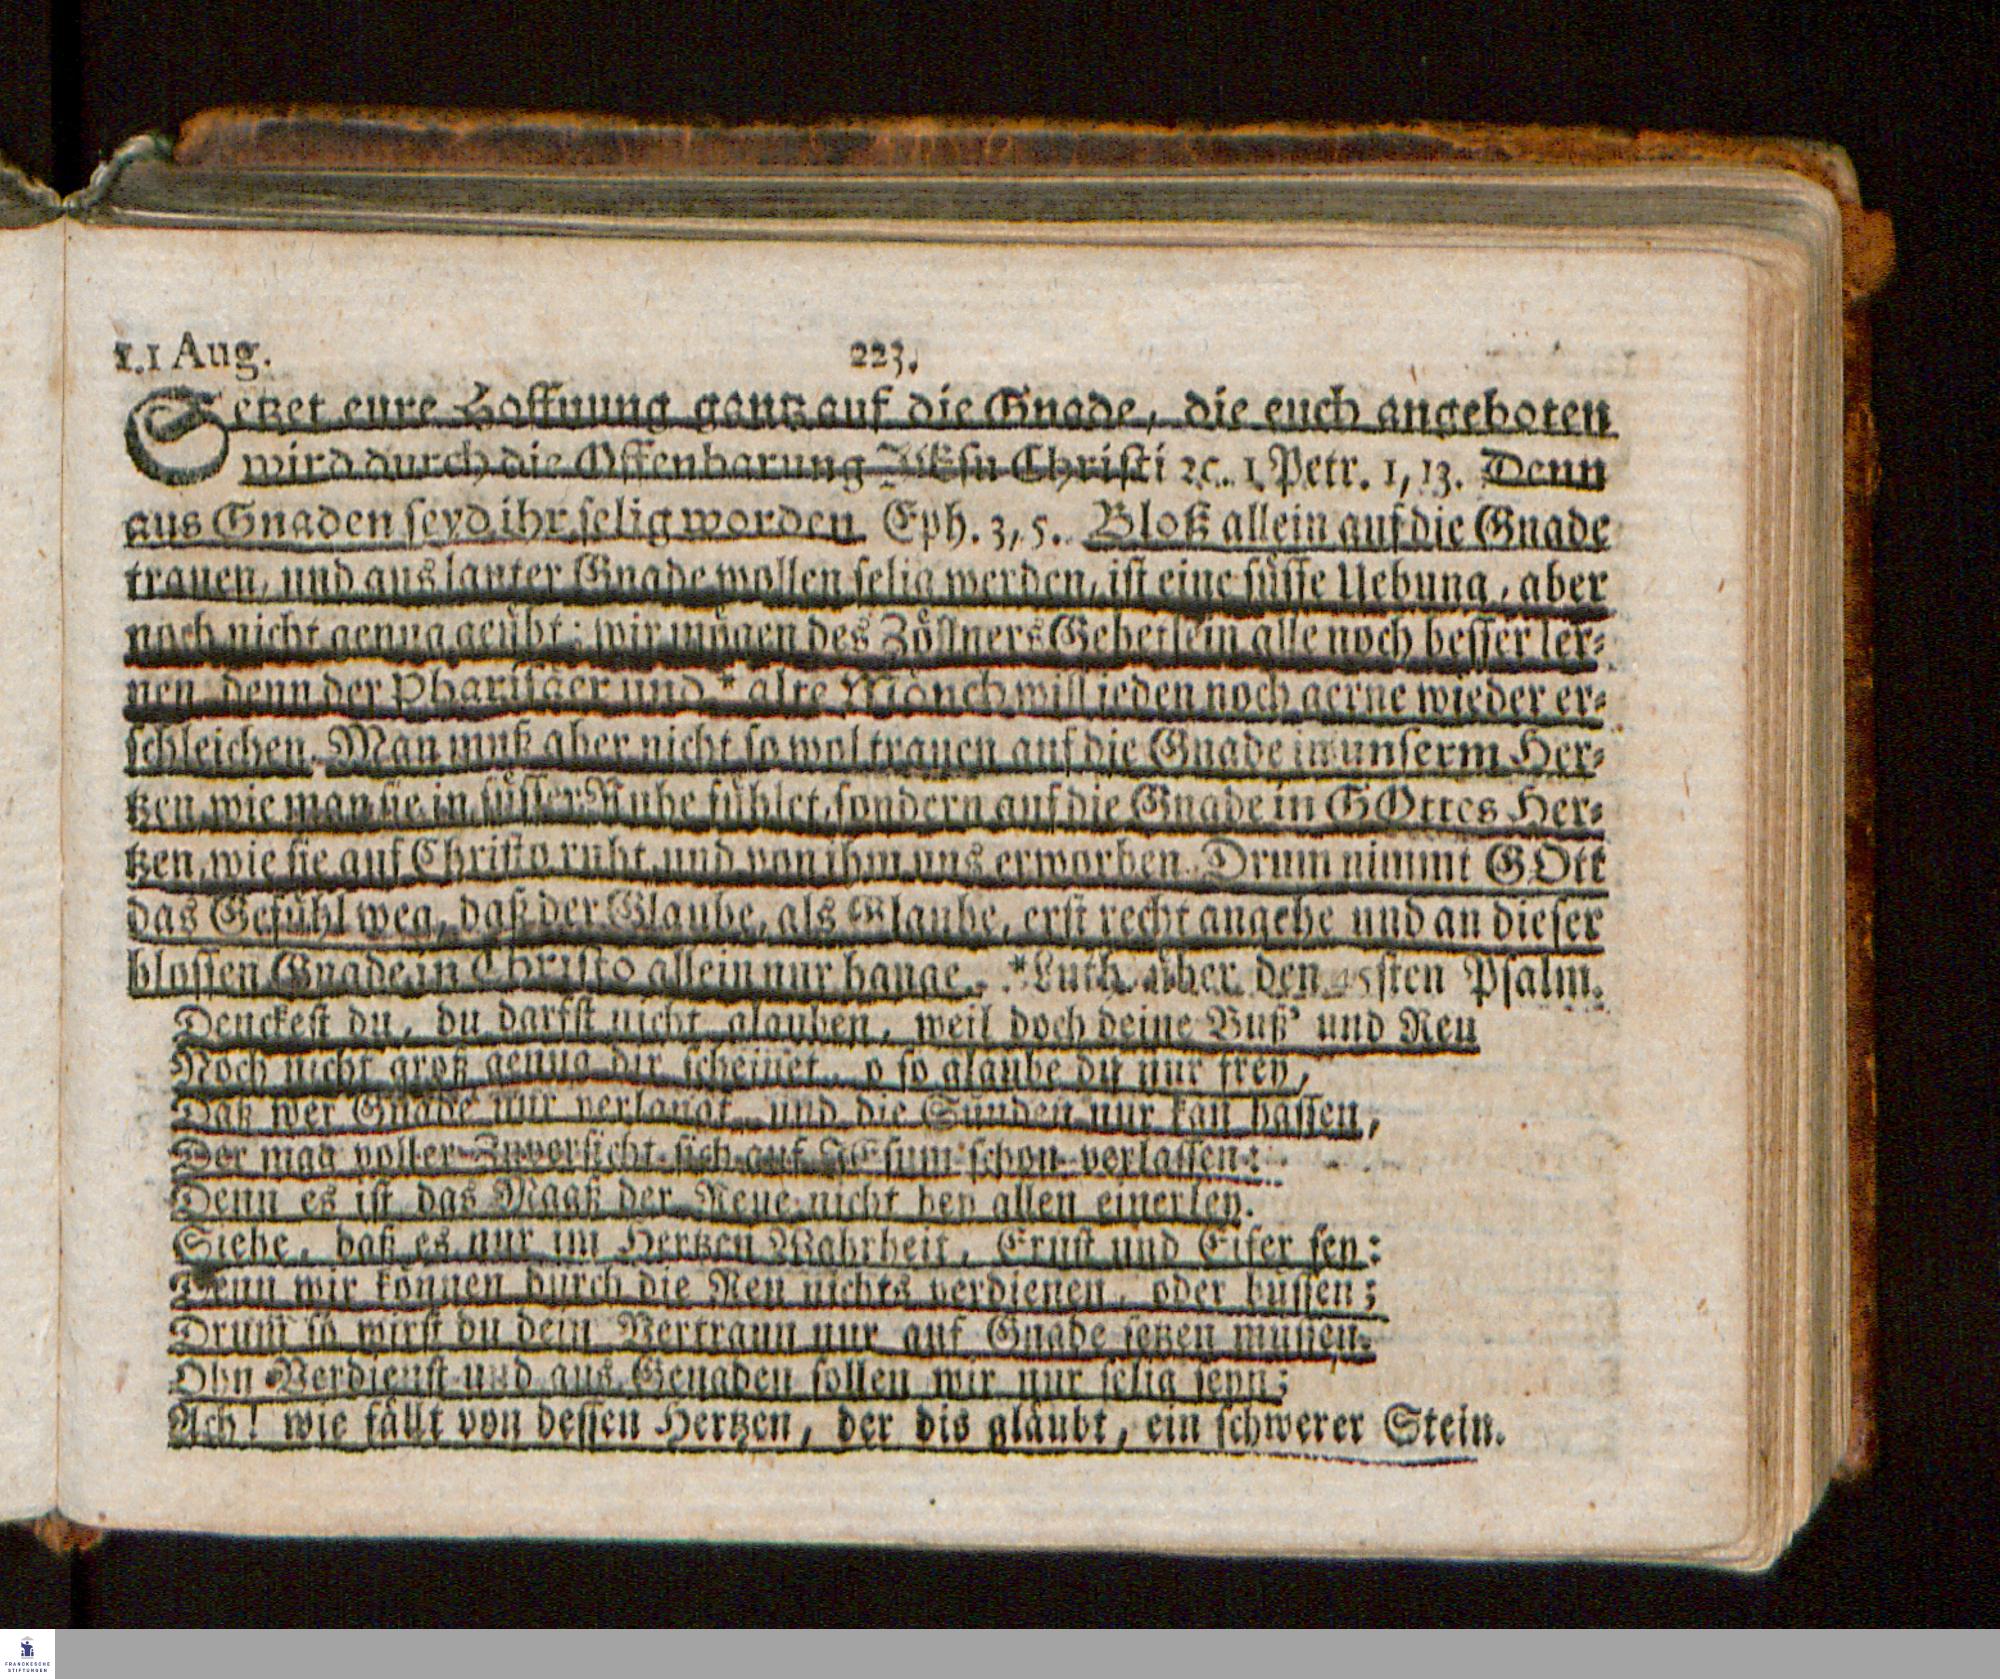 11 Aug.
223.
Setzet eure Hoffnung gantz auf die Gnade, die euch angeboten
wird durch die Offenbarung JEsu Christi ꝛc. 1. Petr. 1, 13. Denn
aus Gnaden seyd ihr selig worden. Eph. 3, 5. Bloß allein auf die Gnade
trauen, und aus lauter Gnade wollen selig werden, ist eine süsse Uebung, aber
noch nicht genug geübt: wir mögen des Zöllners Gebetlein alle noch besser ler⸗
nen, denn der Pharisäer und * alte Mönch will jeden noch gerne wieder er⸗
schleichen. Man muß aber nicht so wol trauen auf die Gnade in unserm Her⸗
tzen, wie man sie in süsser Ruhe fühlet, sondern auf die Gnade in GOttes Her⸗
tzen, wie sie auf Christo ruht, und von ihm uns erworben. Drum nimmt GOtt
das Gefühl weg, daß der Glaube, als Glaube, erst recht angehe und an dieser
blossen Gnade in Christo allein nur hange. * Luth. über den 45sten Psalm.
Denckest du, du darfst nicht glauben, weil doch deine Buß' und Reu
Noch nicht groß genug dir scheinet, o so glaube du nur frey,
Daß wer Gnade nur verlangt, und die Sünden nur kan hassen,
Der mag voller Zuversicht sich auf JEsum schon verlassen:
Denn es ist das Maaß der Reue nicht bey allen einerley.
Siehe, daß es nur im Hertzen Wahrheit, Ernst und Eifer sey:
Denn wir können durch die Reu nichts verdienen, oder büssen;
Drum so wirst du dein Vertraun nur auf Gnade setzen müssen.
Ohn Verdienst und aus Genaden sollen wir nur selig seyn;
Ach! wie fällt von dessen Hertzen, der dis gläubt, ein schwerer Stein.
FRANCKESCHE
STIFTUNGEN